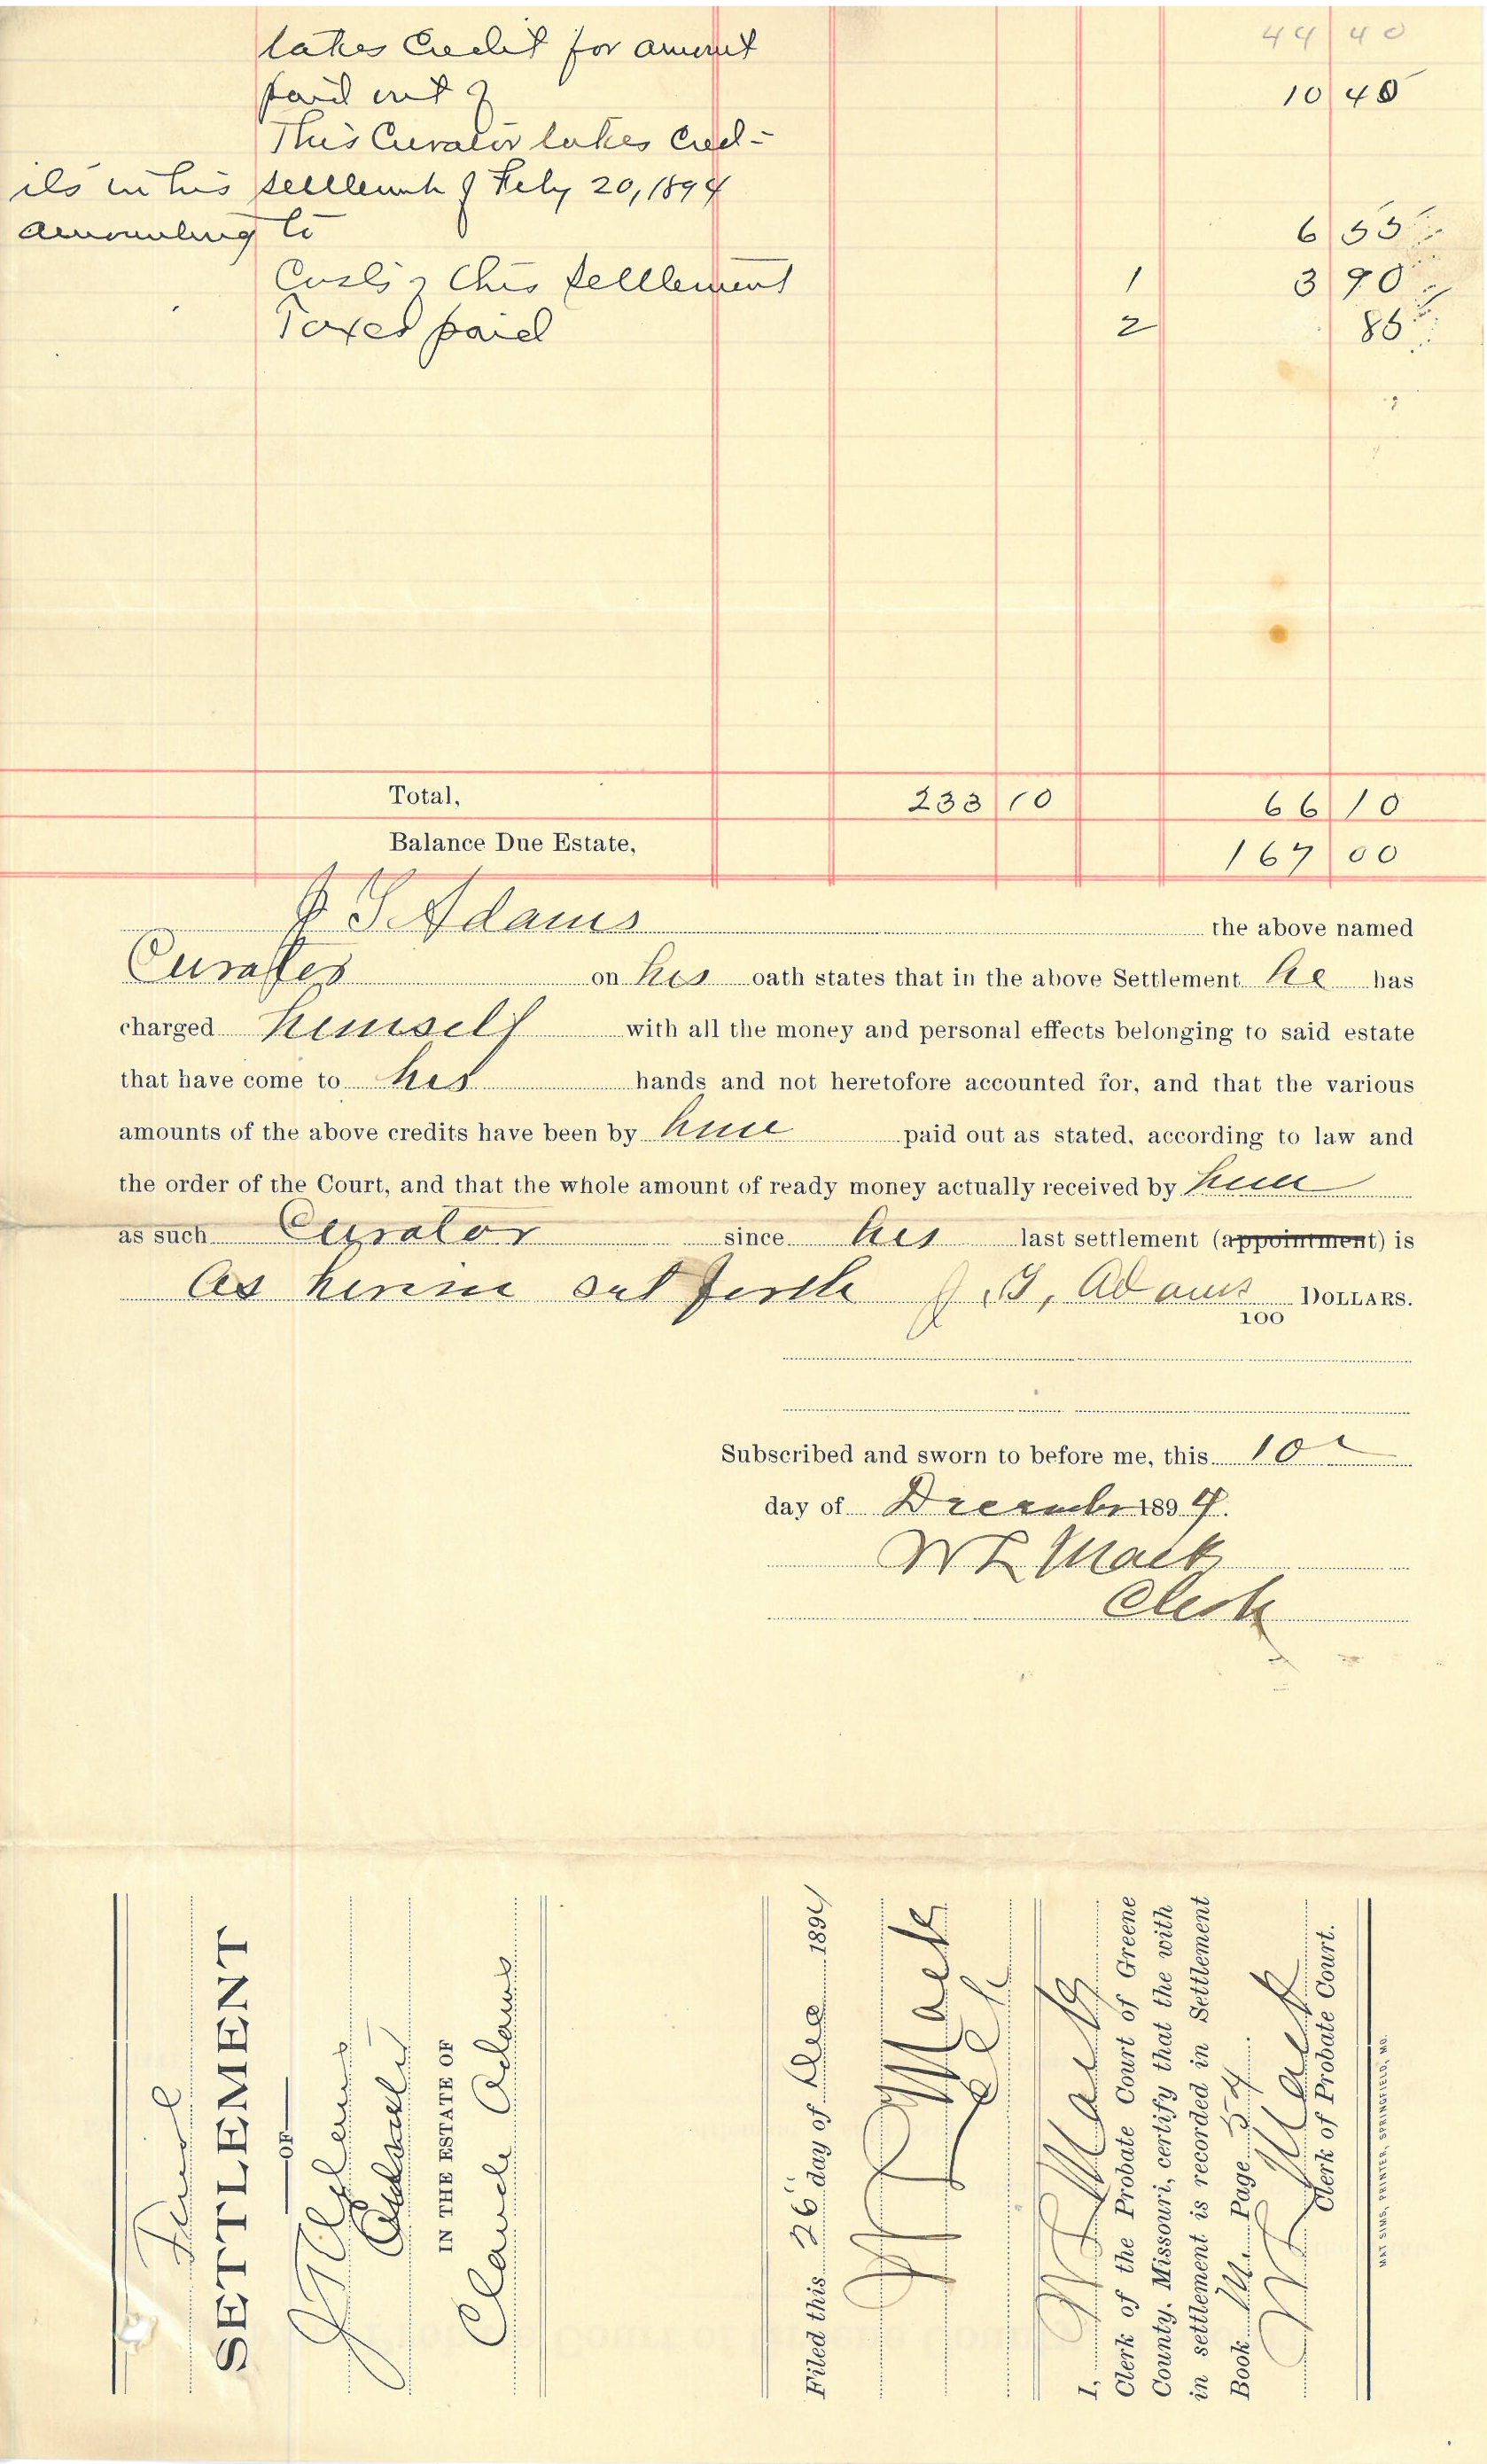 44 40
takes Credit for amount
paid out of 10 40
This Curator takes Cred-
its in his settlement of Feby 20, 1894
amounting to 6 55
Costs of this settlement 1 3 90
Taxes paid 2 85
Total, 233 10 66 10
Balance Due Estate, 167 00
J T Adams the above named
Curator on his oath states that in the above Settlement he has
charged himself with all the money and personal effects belonging to said estate
that have come to his hands and not heretofore accounted for, and that the various
amounts of the above credits have been by him paid out as stated, according to law and
the order of the Court, and that the whole amount of ready money actually received by him
as such Curator since his last settlement (appointment) is
As herein set forth J. T. Adams DOLLARS.
100
Subscribed and sworn to before me, this 10
day of December 1894.
W L Mack
Clerk
Final
SETTLEMENT
OF
J T Adams
Curator
IN THE ESTATE OF
Claude Adams
Filed this 26" day of Dec 1894
W L Mack
Clk
I, W L Mack
Clerk of the Probate Court of Greene
County, Missouri, certify that the with
in settlement is recorded in Settlement
Book M Page 54
W L Mack
Clerk of Probate Court.
MAT SIMS, PRINTER, SPRINGFIELD, MO.